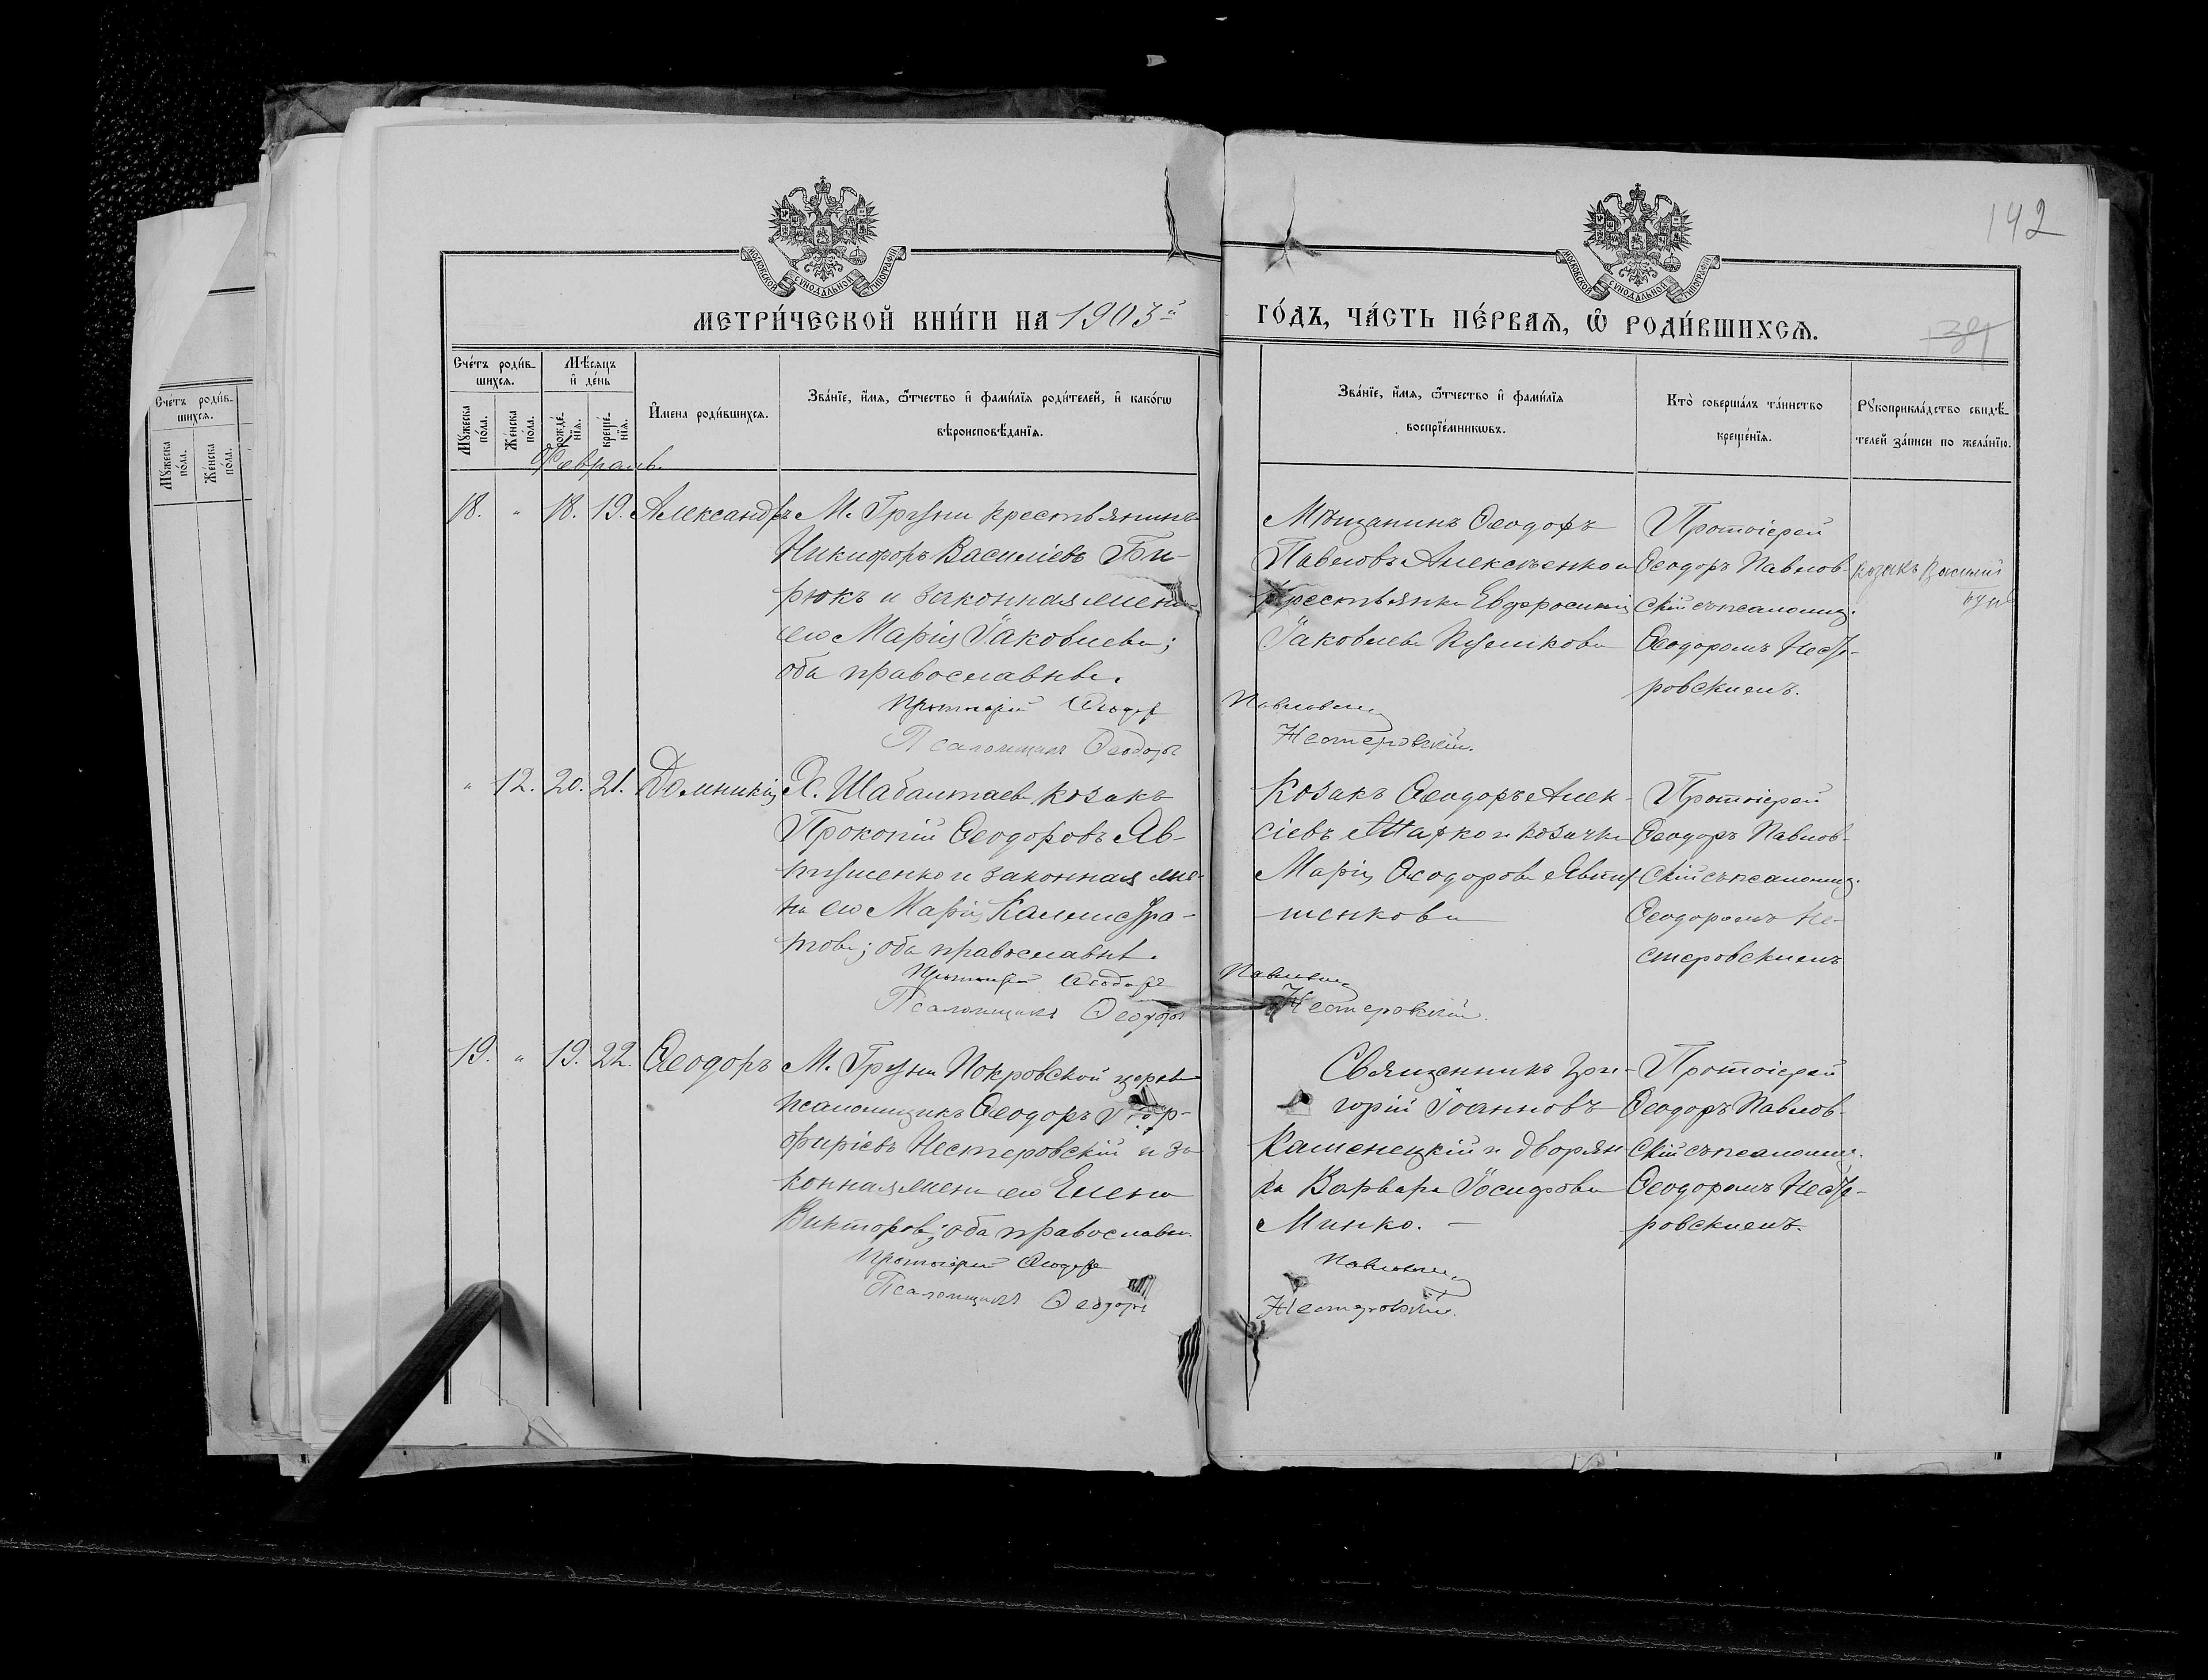 142
МОСКОВСКОЙ СѴНОДАЛЬНОЙ ТИПОГРАФІИ
МОСКОВСКОЙ СѴНОДАЛЬНОЙ ТИПОГРАФІИ
МЕТРИ́ЧЕСКОЙ КНИ́ГИ НА 1903й
ГО́ДЪ, ЧА́СТЬ ПЕ́РВАѦ, Ѡ҆ РОДИ́ВШИХСѦ.
139
Сче́тъ роди́в-
шихсѧ.
Мѣ́сѧцъ
и҆ де́нь
Мꙋ́жеска по́ла.
Же́нска по́ла.
рожде́-нїѧ.
креще́-нїѧ.
И҆мена роди́вшихсѧ.
Зва́нїе, и҆́мѧ, ѻ҆́тчество и҆ фами́лїѧ роди́телей, и҆ како́гѡ
вѣроисповѣ́данїѧ.
Зва́нїе, и҆́мѧ, ѻ҆́тчество и҆ фами́лїѧ
воспрїе́мникѡвъ.
Кто̀ соверша́лъ та́инство
креще́нїѧ.
Рꙋкоприкла́дство свидѣ́-
телей за́писи по жела́нїю.
Сче́тъ роди́в-
шихсѧ.
Мꙋ́жеска по́ла.
Же́нска по́ла.
Февраль.
18. " 18. 19. Александръ
М. Груни крестьянинъ
Никифоръ Василіевъ Би-
рюкъ и законная жена
его Марія Іаковлева;
оба православные.
Протоіерей Ѳеодоръ
Псаломщикъ Ѳеодоръ
Мѣщанинъ Ѳеодоръ
Павловъ Алексѣенко и
крестьянка Евфросинія
Іаковлева
Павловскій
Нестеровскій.
Протоіерей
Ѳеодоръ Павлов-
скій съ псаломщ.
Ѳеодоромъ Несте-
ровскимъ.
козакъ Василий
" 12. 20. 21. Домникія
Х. Шабалтаева козакъ
Прокопій Ѳеодоровъ Яв-
тушенко и законная же-
на его Марія Каллистра-
това; оба православные.
Протоіерей Ѳеодоръ
Псаломщикъ Ѳеодоръ
Козакъ Ѳеодоръ Алек-
сіевъ и козачка
Марія Ѳеодорова Явту-
шенкова
Павловскій
Нестеровскій.
Протоіерей
Ѳеодоръ Павлов-
скій съ псаломщ.
Ѳеодоромъ Не-
стеровскимъ
19. " 19. 22. Ѳеодоръ
М. Груни Покровской церкви
псаломщикъ Ѳеодоръ Пор-
фиріевъ Нестеровскій и за-
конная жена его Елена
Викторова; оба православные.
Протоіерей Ѳеодоръ
Псаломщикъ Ѳеодоръ
Священникъ Гри-
горій Іоанновъ
Каменецкій и дворян-
ка Варвара Іосифова
Минко.
Павловскій
Нестеровскій.
Протоіерей
Ѳеодоръ Павлов-
скій съ псаломщ.
Ѳеодоромъ Несте-
ровскимъ.